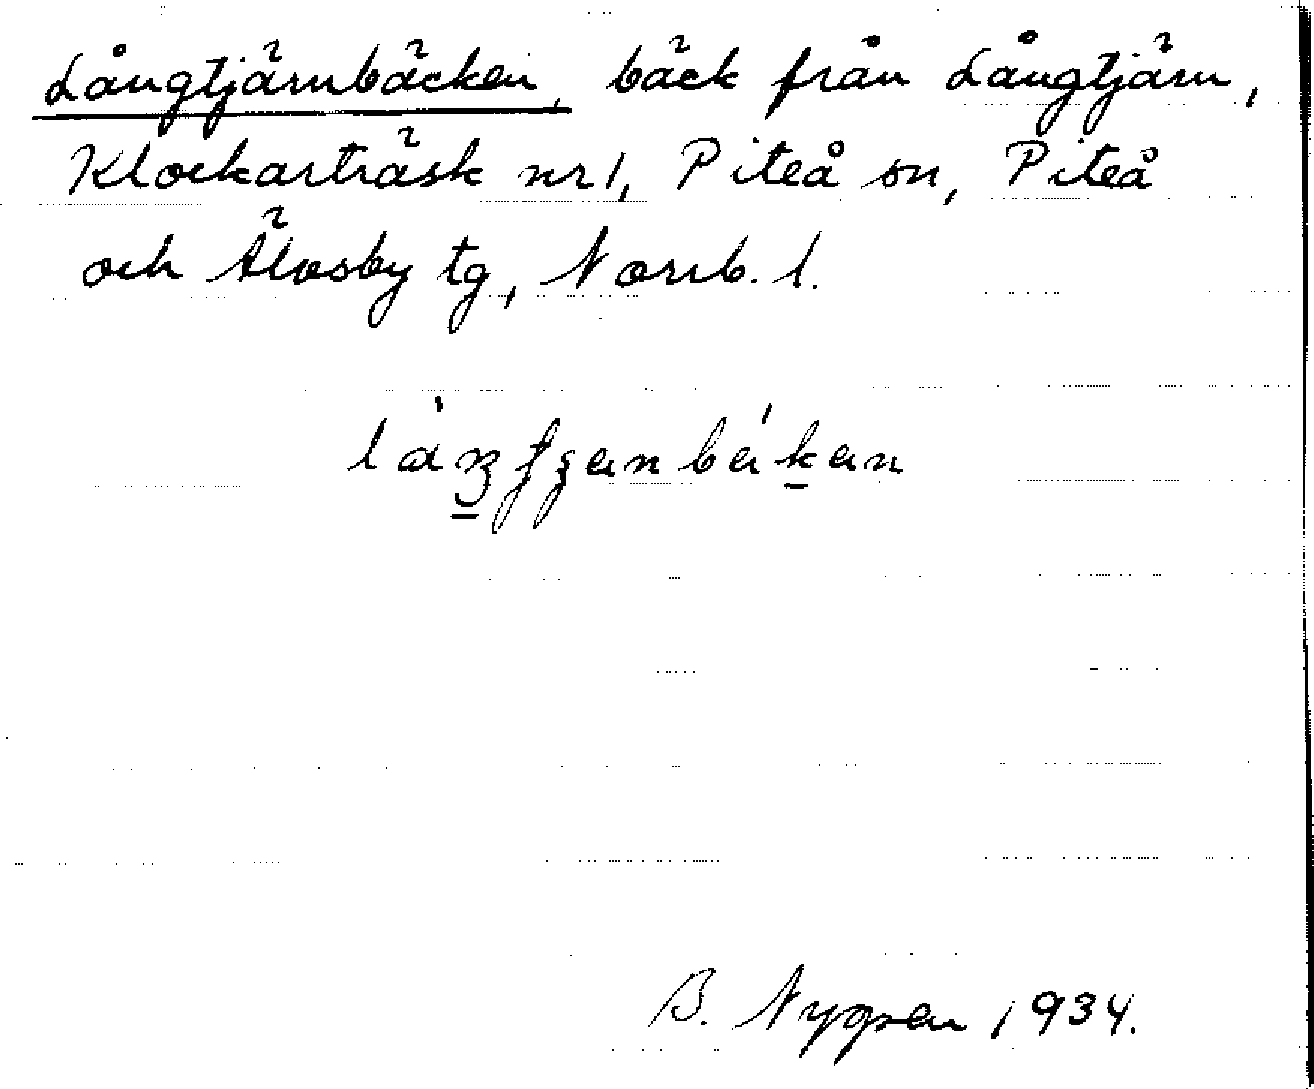 Långtjärnbäcken, bäck från Långtjärn,
Klockarträsk nr 1, Piteå sn, Piteå
och Älvsby tg, Norrb. l.
B. Nygren 1934.